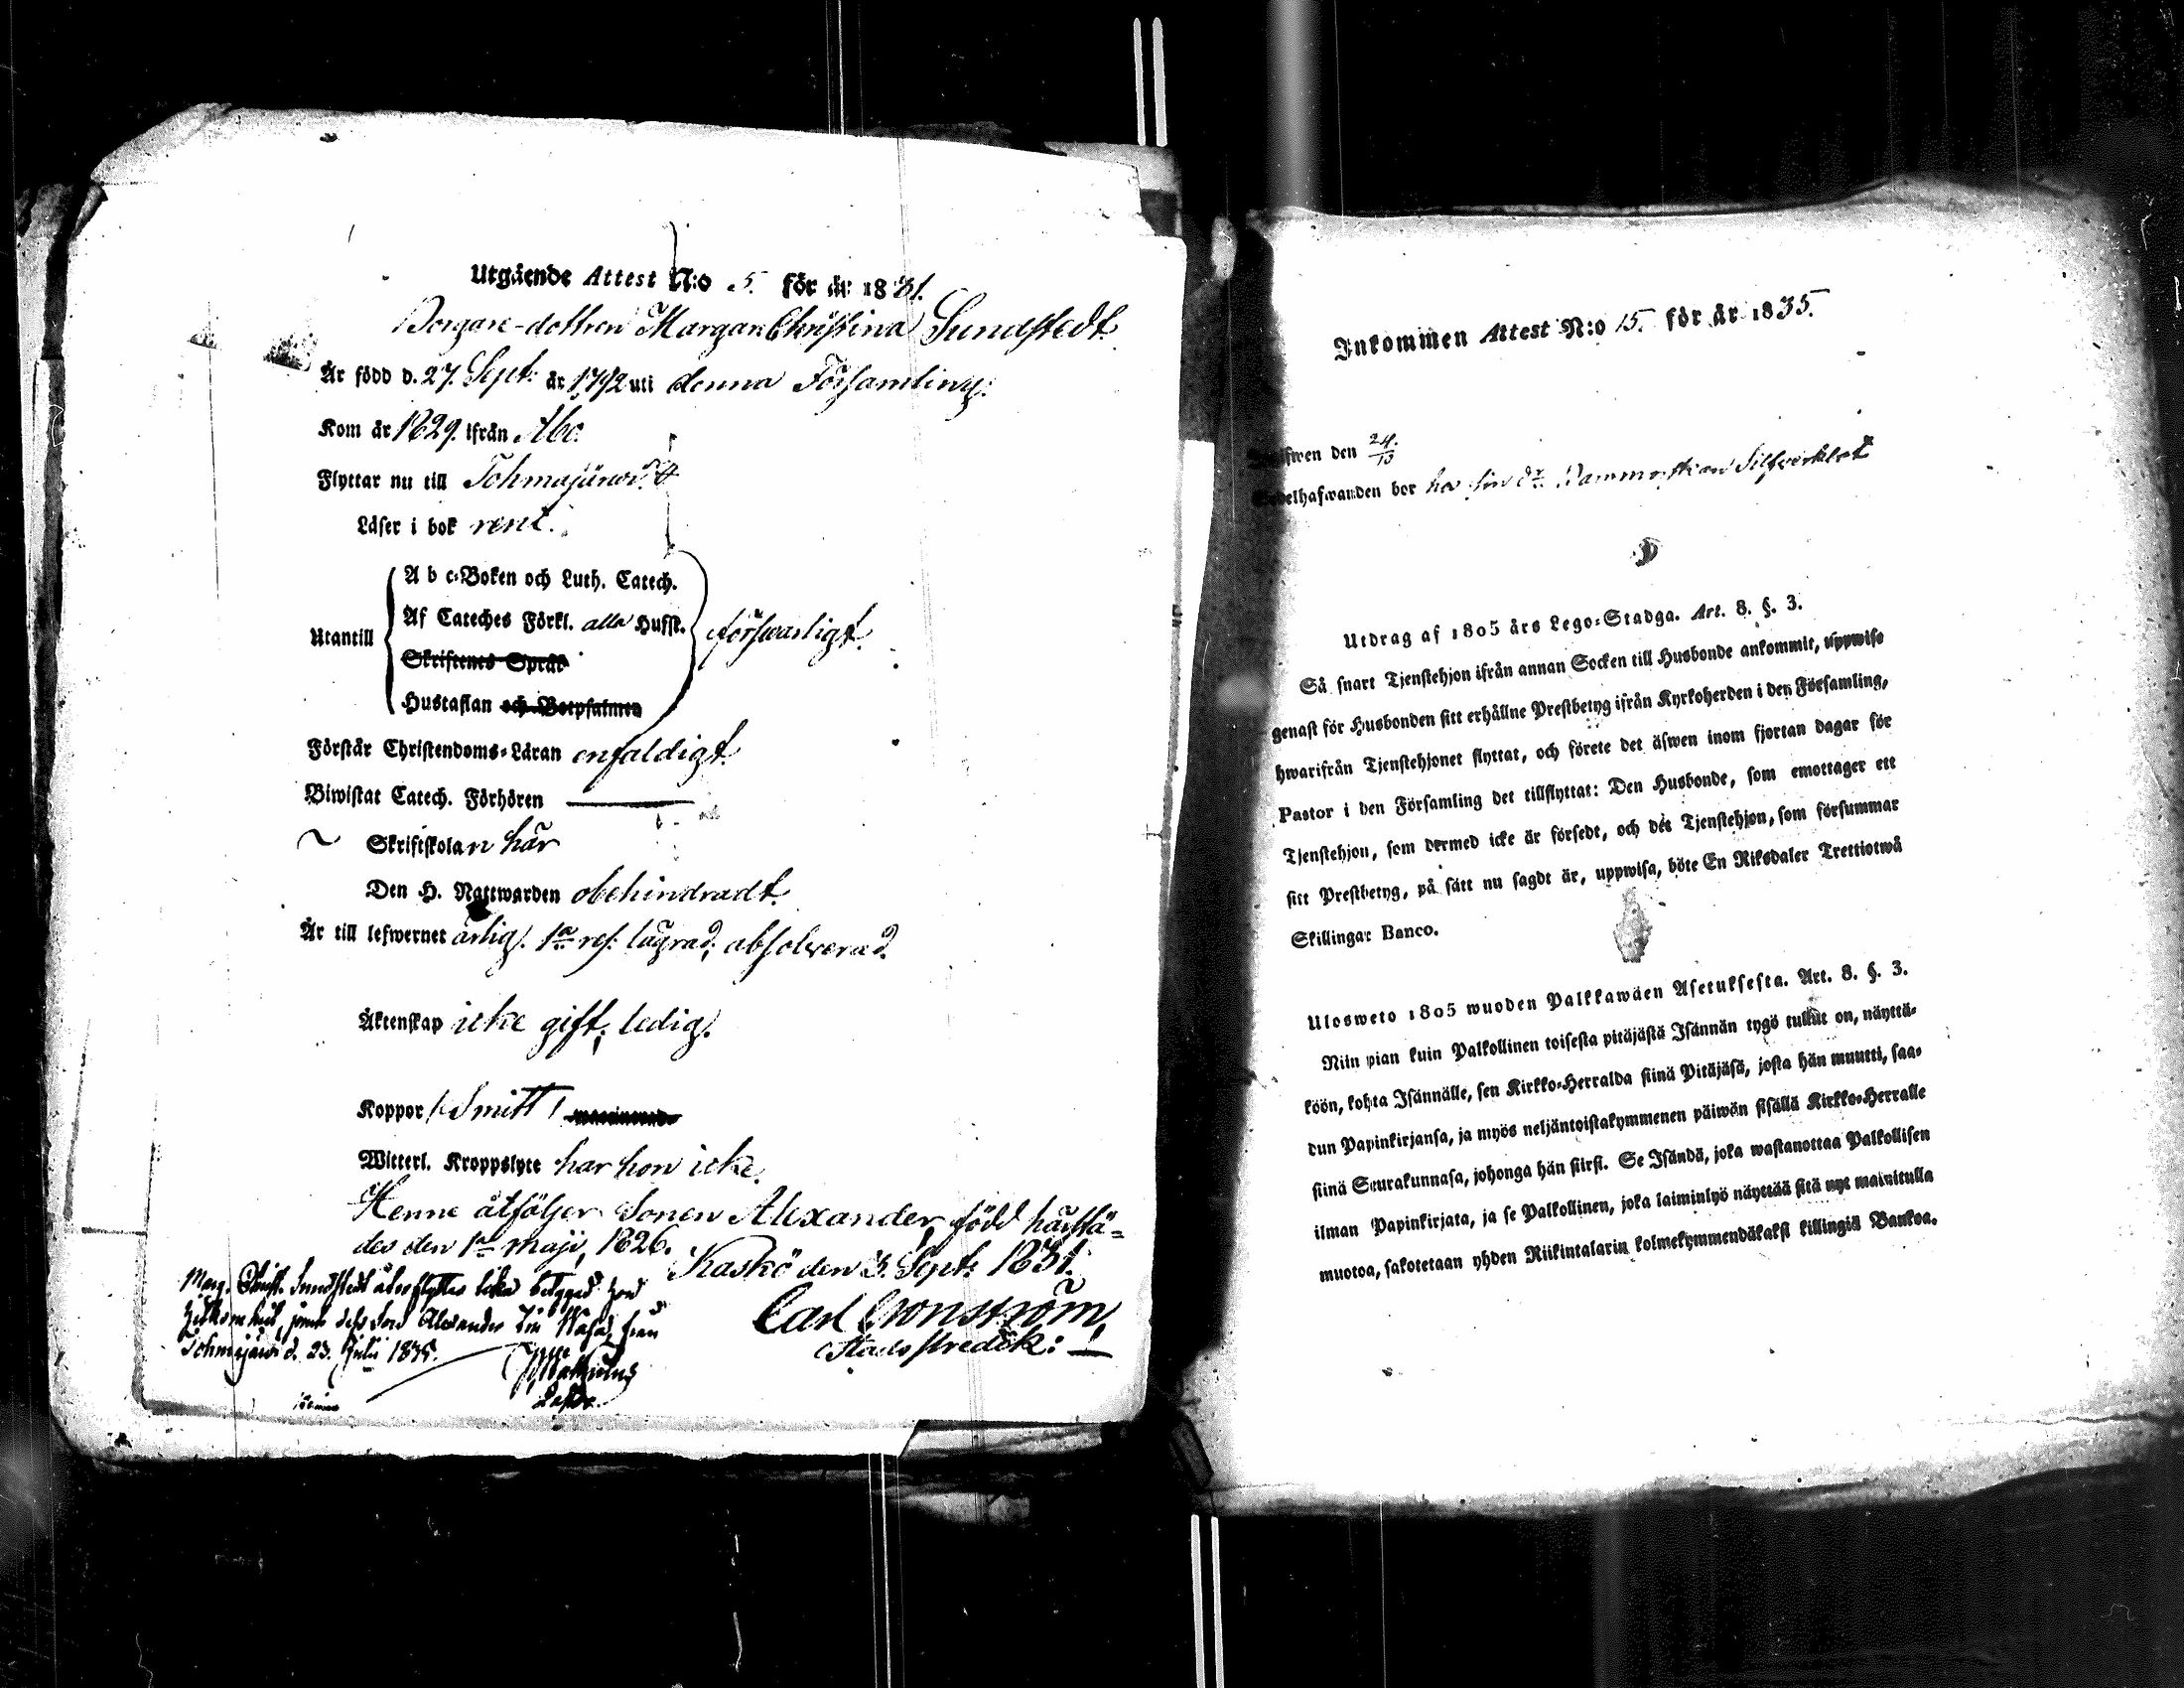 Utgående Attest N:o 5. för år 1831.
Borgare-dottren Margar. Christina Sundstedt
Är född d. 27. Sept. år 1792 uti denna Församling.
Kom år 1829. ifrån Åbo
Flyttar nu till Tohmajärvi
Läser i bok rent.
A b c-Boken och Luth. Catech.
Af Cateches Förkl. alla Husst.
Utantill försvarligt.
Skriftenes Språk
Hustaflan och Botpsalmen
Förstår Christendoms-Läran enfaldigt.
Biwistat Catech. Förhören
Skriftskolan här
Den H. Nattwarden obehindradt.
Är till lefwernet ärlig. 1a res. lägrad, absolverad.
Äktenskap icke gift, ledig.
Koppor Smitt
Witterl. Kroppslyte har hon icke.
Henne åtföljer Sonen Alexander, född härstä-
des den 1a maji 1826.
Kaskö den 3. Sept. 1831.
Carl Cronström
Marg. Christ. Sundstedt
Alexander
Tohmajärvi d. 23. Julii 1835.
Inkommen Attest N:o 15. för år 1835.
den 24/10
bor hos
Utdrag af 1805 års Lego-Stadga. Art. 8. §. 3.
Så snart Tjenstehjon ifrån annan Socken till Husbonde ankommit, uppwise
genast för Husbonden sitt erhållne Prestbetyg ifrån Kyrkoherden i den Församling,
hwarifrån Tjenstehjonet flyttat, och förete det äfwen inom fjortan dagar för
Pastor i den Församling det tillflyttat: Den Husbonde, som emottager ett
Tjenstehjon, som dermed icke är försedt, och det Tjenstehjon, som försummar
sitt Prestbetyg, på sätt nu sagdt är, uppwisa, böte En Riksdaler Trettiotwå
Skillingar Banco.
Ulosweto 1805 wuoden Palkkawäen Asetuksesta. Art. 8. §. 3.
Niin pian kuin Palkollinen toisesta pitäjästä Isännän tygö tullut on, näyttä-
köön, kohta Isännälle, sen Kirkko-Herralda siinä Pitäjäsä, josta hän muutti, saa-
dun Papinkirjansa, ja myös neljäntoistakymmenen päiwän sisällä Kirkko-Herralle
siinä Seurakunnasa, johonga hän siirsi. Se Isändä, joka wastanottaa Palkollisen
ilman Papinkirjata, ja se Palkollinen, joka laiminlyö näyttää sitä nyt mainitulla
muotoa, sakotetaan yhden Riikintalarin kolmekymmendäkaksi killingiä Bankoa.